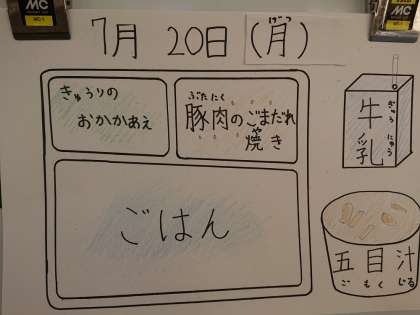 MC
MC
7月 20日(月)
げつ
きゅうりの
おかかあえ
ぶたにく
豚肉のごまだれ
や
焼き
ごはん
牛乳
ぎゅうにゅう
五目汁
ごもくじる